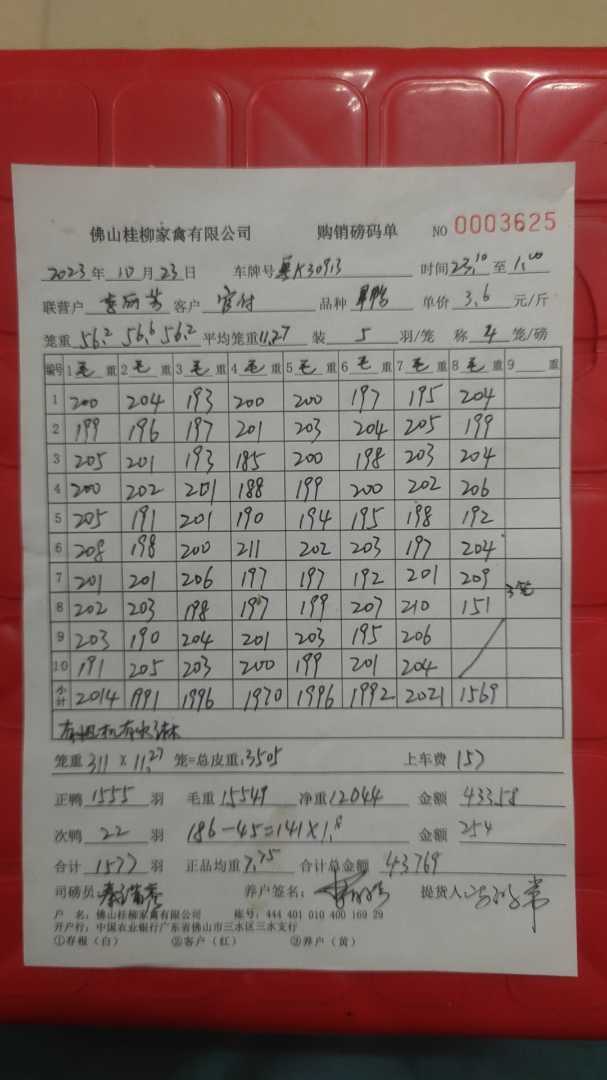 佛山桂柳家禽有限公司 购销磅码单 NO 0003625
2023年10月23日 车牌号 K30913 时间23,10至1,00
联营户 客户 品种 单价 3.6 元/斤
笼重 56.2 56.6 56.2 平均笼重 11.27 装 5 羽/笼 称 4 笼/磅
编号 1毛重 2毛重 3毛重 4毛重 5毛重 6毛重 7毛重 8毛重 9 重
1 200 204 193 200 200 197 195 204
2 199 196 197 201 203 204 205 199
3 205 201 193 185 200 198 203 204
4 200 202 201 188 199 200 202 206
5 205 191 201 190 194 195 198 192
6 208 198 200 211 202 203 197 204
7 201 201 206 197 197 192 201 209
8 202 203 198 197 199 207 210 151 3笼
9 203 190 204 201 203 195 206
10 191 205 203 200 199 201 204
小计 2014 1991 1996 1970 1996 1992 2021 1569
笼重 311 × 11.27 笼=总皮重:3505 上车费 157
正鸭 1555 羽 毛重 15549 净重 12044 金额 43358
次鸭 22 羽 186-45=141×1.8 金额 254
合计 1577 羽 正品均重 7.75 合计总金额 43769
司磅员: 养户签名: 提货人:
户 名:佛山桂柳家禽有限公司 帐号:444 401 010 400 169 29
开户行:中国农业银行广东省佛山市三水区三水支行
①存根(白) ②客户(红) ③养户(黄)